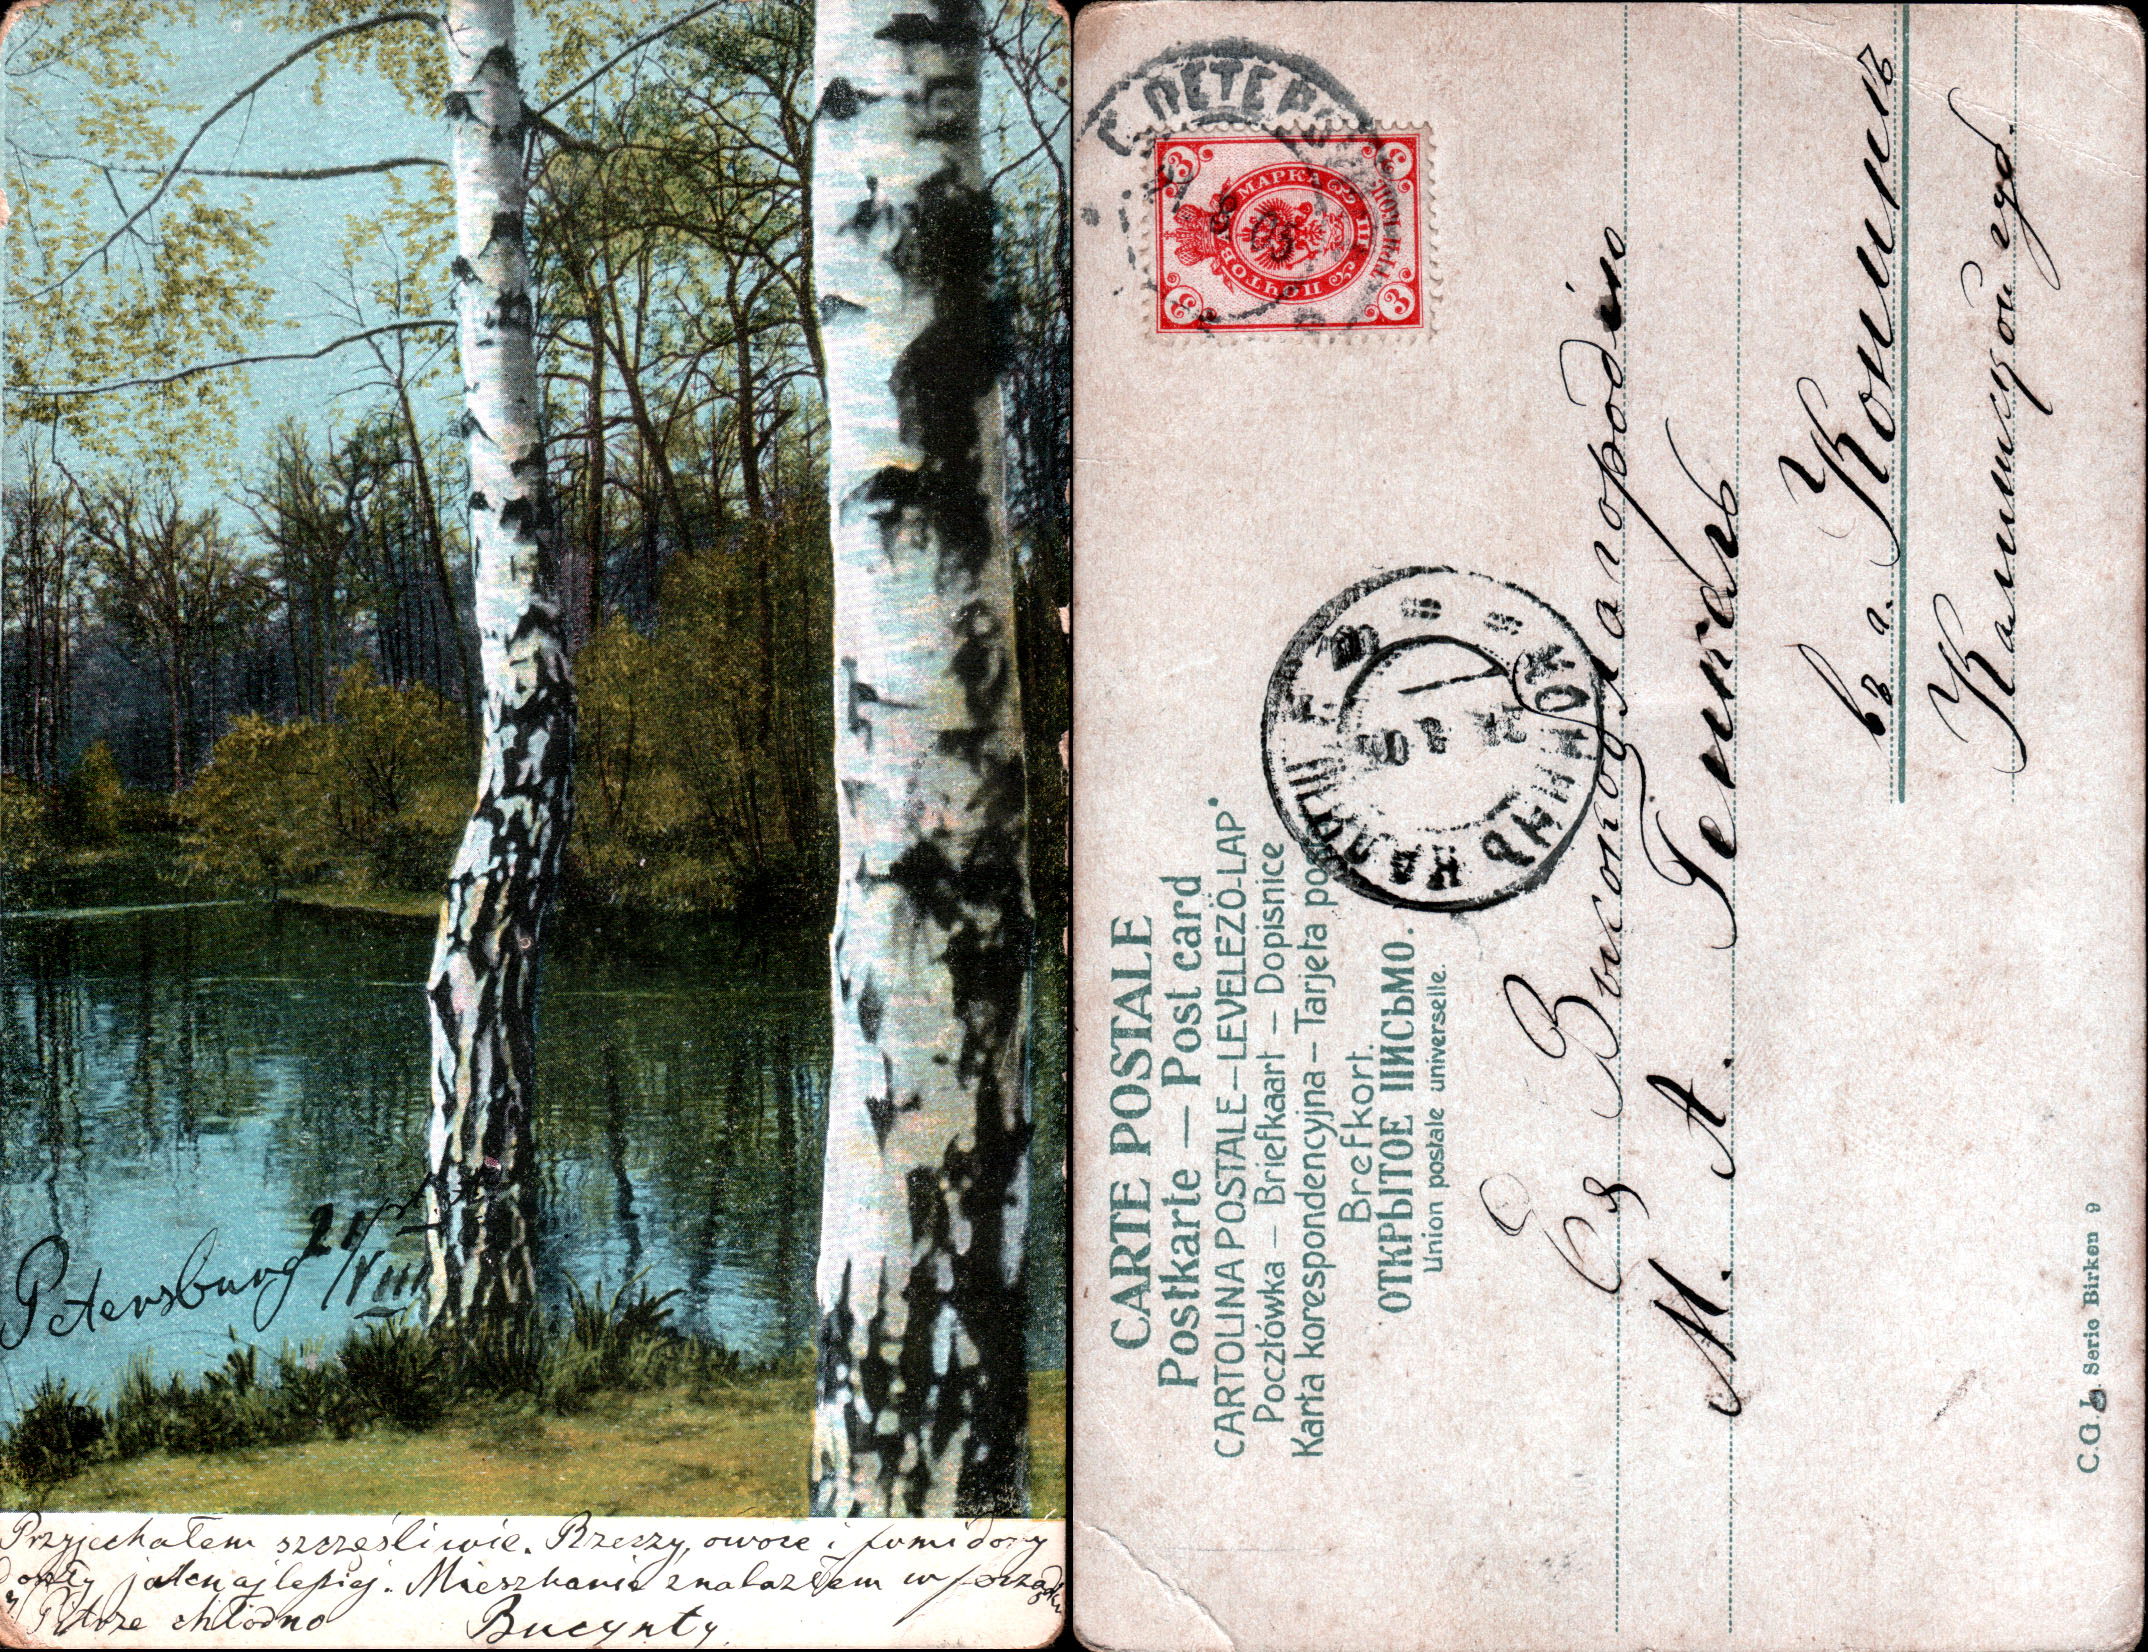 Petersburg 21/VIII
Przyjechałem szczęśliwie. Rzeczy, owoce i pomidory
doszły jaknajlepiej. Mieszkanie znalazłem w porządku
W Pitrze chłodno
С. ПЕТЕРБ
МАРКА
ПОЧТОВ
3
3
3
3
8 05
КОНИНЪ КАЛИШ
CARTE POSTALE
Postkarte — Post card
CARTOLINA POSTALE — LEVELEZÖ-LAP.
Pocztówka — Briefkaart — Dopisnice
Karta korespondencyjna — Tarjeta po
Brefkort.
ОТКРЫТОЕ ПИСЬМО.
Union postale universelle.
Ея Высокоблагородію
М. А.
въ г. Конинъ
Калишской губ.
C.G.L. Serie Birken 9